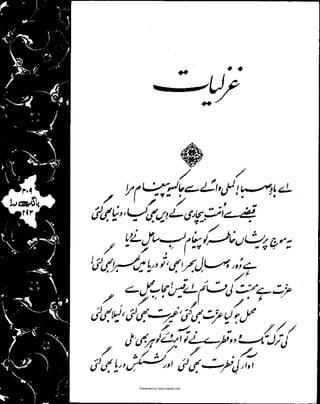 غزلیات
اے بادِ صبا! کملی والےؐ سے جا کہیو پیغام مرا
قبضے سے اُمّت بیچاری کے دیں بھی گیا، دنیا بھی گئی
یہ موجِ پریشاں خاطر کو پیغام لبِ ساحل نے دیا
ہے دور وصالِ بحر ابھی، تو دریا میں گھبرا بھی گئی!
عزّت ہے محبت کی قائم اے قیس! حجابِ محمل سے
محمل جو گیا عزّت بھی گئی، غیرت بھی گئی، لیلا بھی گئی
کی ترک تگ و دو قطرے نے تو آبروئے گوہر بھی ملی
آوارگیِ فطرت بھی گئی اور کشمکشِ دریا بھی گئی
۳۰۹
بانگِ درا
۲۹۳
Presented by www.ziaraat.com